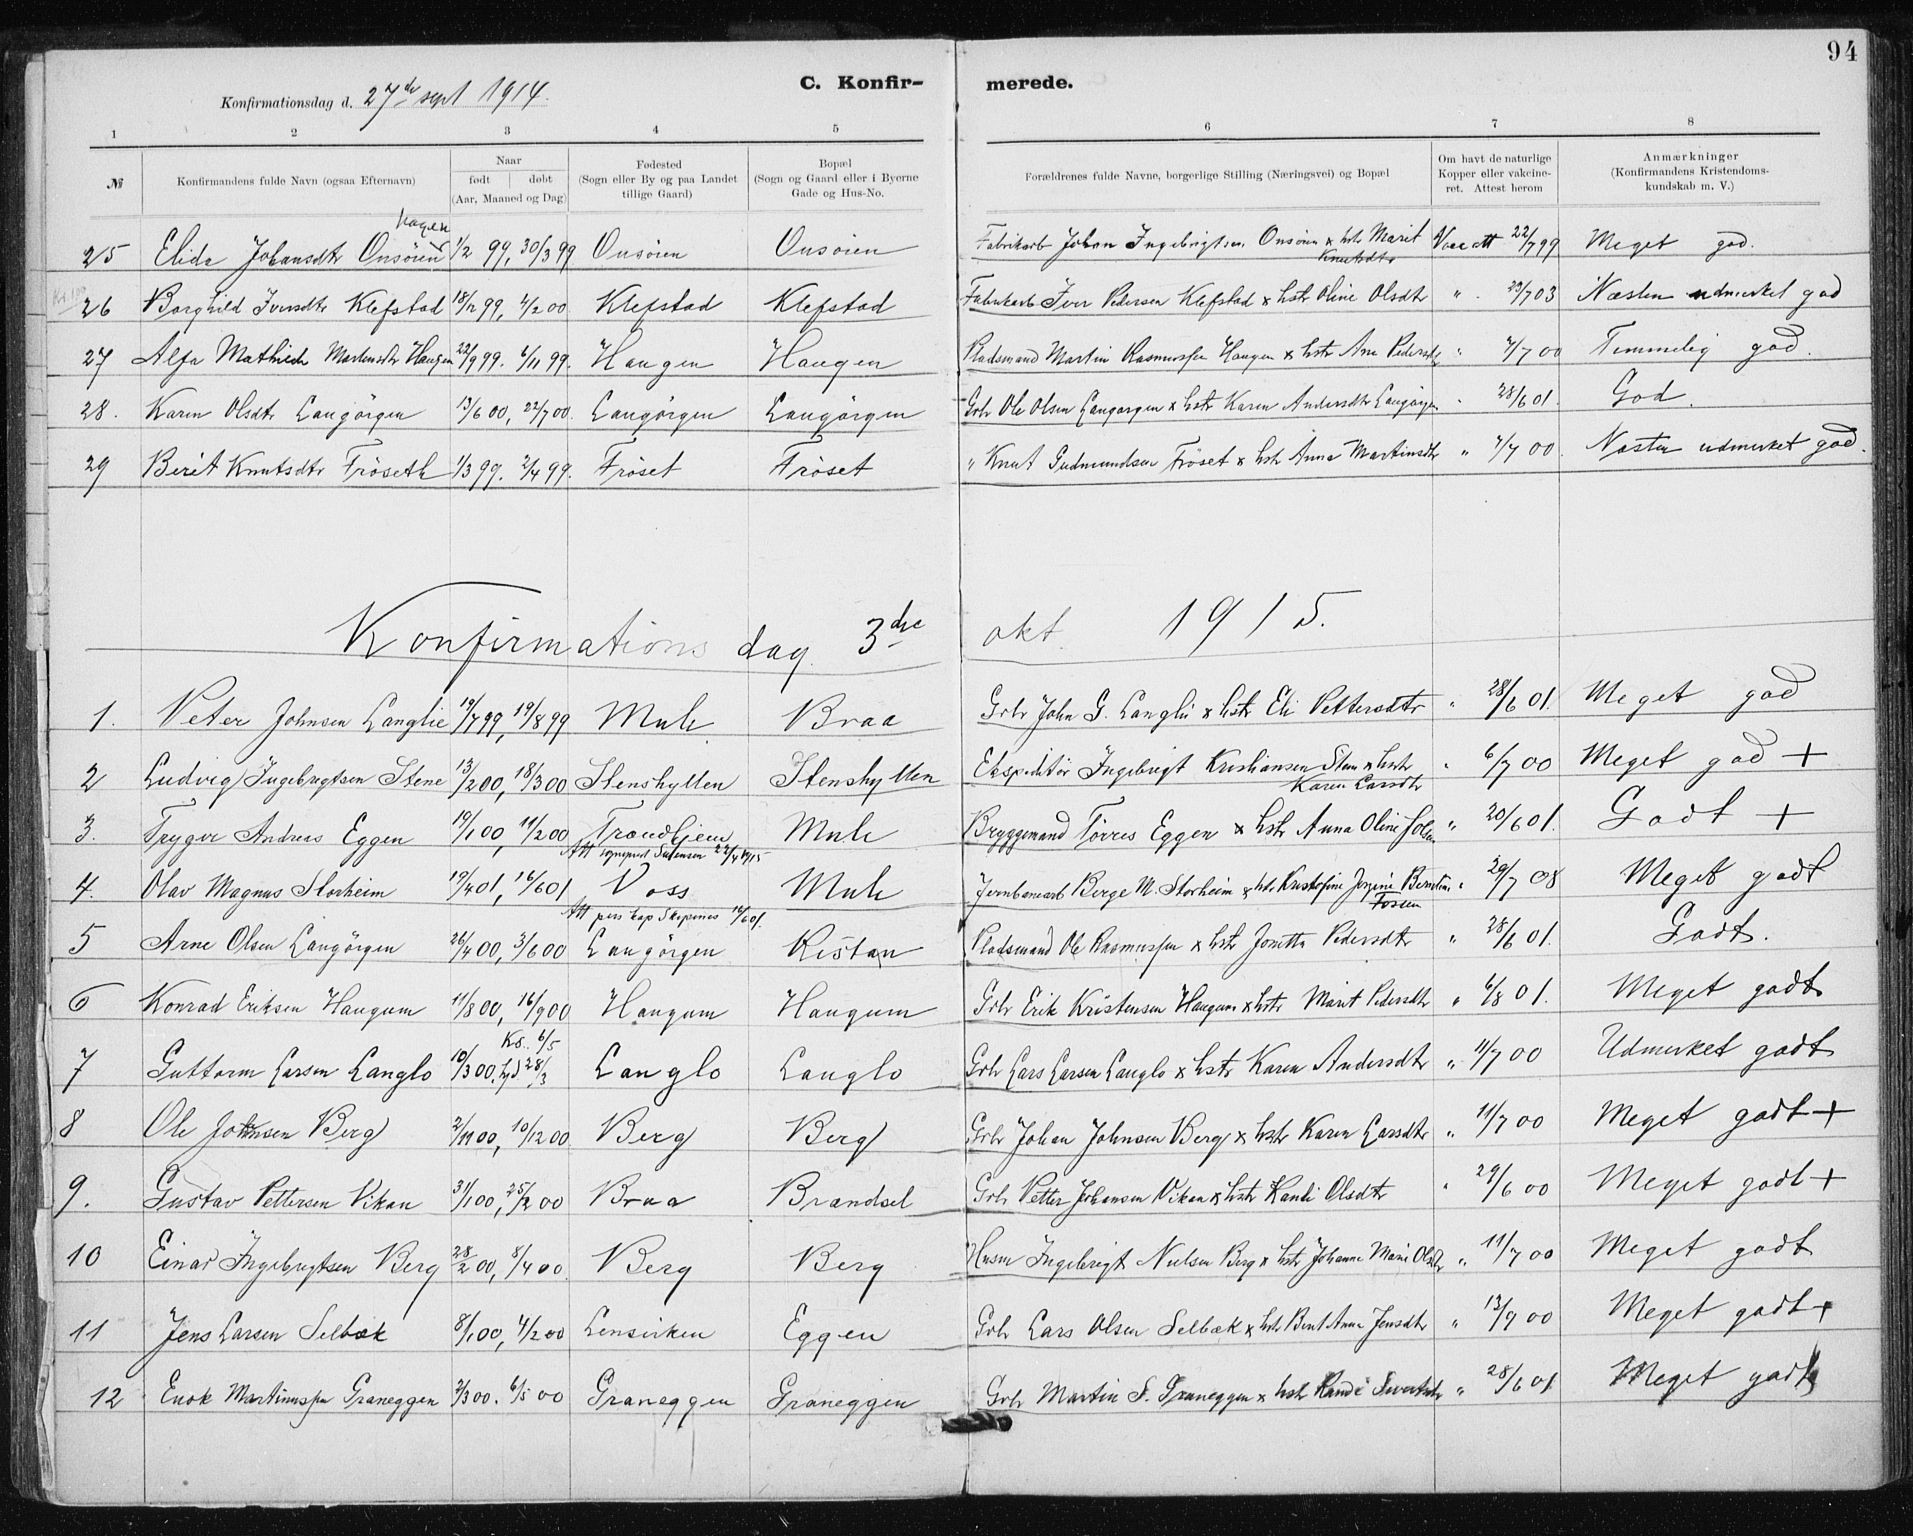 94
C. Konfir- merede.
Konfirmationsdag d. 27de sept 1914.
1 2 3 4 5 6 7 8
№ Konfirmandens fulde Navn (ogsaa Efternavn) Naar født døbt (Aar, Maaned og Dag) Fødested (Sogn eller By og paa Landet tillige Gaard) Bopæl (Sogn og Gaard eller i Byerne Gade og Hus-No. Forældrenes fulde Navne, borgerlige Stilling (Næringsvei) og Bopæl Om havt de naturlige Kopper eller vakcineret. Attest herom Anmærkninger (Konfirmandens Kristendomskundskab m. V.)
hagen
25 Elida Johansdtr Onsöien 1/2 99, 30/3 99 Onsöien Onsöien Fabrikarb Johan Ingebrigtsen Onsöien x hstr Marit Knutsdtr Vac att 22/7 99 Meget god.
26 Borghild Iversdtr Klefstad 18/12 99, 4/2 00 Klefstad Klefstad Fabrikarb Iver Pedersen Klefstad x hstr Oline Olsdtr " 29/7 03 Næsten udmerket god
27 Alfa Mathilde Martinsdtr Haugen 22/9 99. 6/11 99. Haugen Haugen Pladsmand Martin Rasmussen Haugen x hstr Ane Pedersdtr " 7/7 00 Temmelig god.
28. Karen Olsdtr Langörgen 13/6 00, 22/7 00. Langörgen Langörgen Gbr Ole Olsen Langörgen x hstr Karen Andersdtr Langörgen " 28/6 01. God.
29 Berit Knutsdtr Fröseth 1/3 99. 2/4 99. Fröset Fröset " Knut Gudmundsen Fröset x hstr Anna Martinsdtr " 7/7 00. Næsten udmerket god.
Konfirmations dag 3die okt. 1915.
1. Peter Johnsen Langlie 19/7 99, 19/8 99 Mule Braa Gbr John G. Langli x hstr Eli Pettersdtr " 28/6 01. Meget god
2 Ludvig Ingebrigtsen Stene 13/2 00, 18/3 00 Stenshyllen Stenshyllen Ekspeditör Ingebrigt Kristiansen Stene x hstr Karen Larsdtr " 6/7 00 Meget god +
3. Trygve Andreas Eggen 19/1 00, 11/2 00 Trondhjem Mule Bryggemand Törres Eggen x hstr Anna Oline " 20/6 01. Godt +
Att sognepr 22/4 1915
4. Olav Magnus Storheim 19/4 01, 16/6 01 Voss Mule Jernbanearb Berge M. Storheim x hstr Kristofine Jorgine Fossen " 29/7 08 Meget godt
Att pers kap 16/6 01.
5 Arne Olsen Langörgen 26/4 00, 3/6 00 Langörgen Ristan Pladsmand Ole Rasmussen x hstr Jonetta Pedersdtr " 28/6 01. Godt.
6 Konrad Eriksen Haugum 11/8 00, 16/9 00 Haugum Haugum Gbr Erik Kristensen Haugum x hstr Marit Pedersdtr " 6/8 01. Meget godt
7 Guttorm Larsen Langlo 10/3 00. hjd 28/3 Ks. 6/5 Langlo Langlo Gbr Lars Larsen Langlo x hstr Karen Andersdtr " 11/7 00 Udmerket godt
8 Ole Johnsen Berg 2/11 00, 10/12 00. Berg Berg Gbr Johan Johnsen Berg x hstr Karen Larsdtr " 11/7 00 Meget godt +
9. Gustav Pettersen Vikan 31/1 00, 25/2 00 Braa Brandsel Gbr Petter Johansen Vikan x hstr Randi Olsdtr " 29/6 00 Meget godt +
10 Einar Ingebrigtsen Berg 28/2 00, 8/4 00. Berg Berg Husm Ingebrigt Nielsen Berg x hstr Johanne Marie Olsdtr " 11/7 00 Meget godt
11 Jens Larsen Selbæk 8/1 00, 4/2 00 Lensvirken Eggen Gbr Lars Olsen Selbæk x hstr Berit Anna Jensdtr " 13/9 00 Meget godt +
12 Enok Martinussen Graneggen 2/3 00. 6/5 00 Graneggen Graneggen Gbr Martin S. Graneggen x hstr Randi Sivertsdtr " 28/6 01. Meget godt